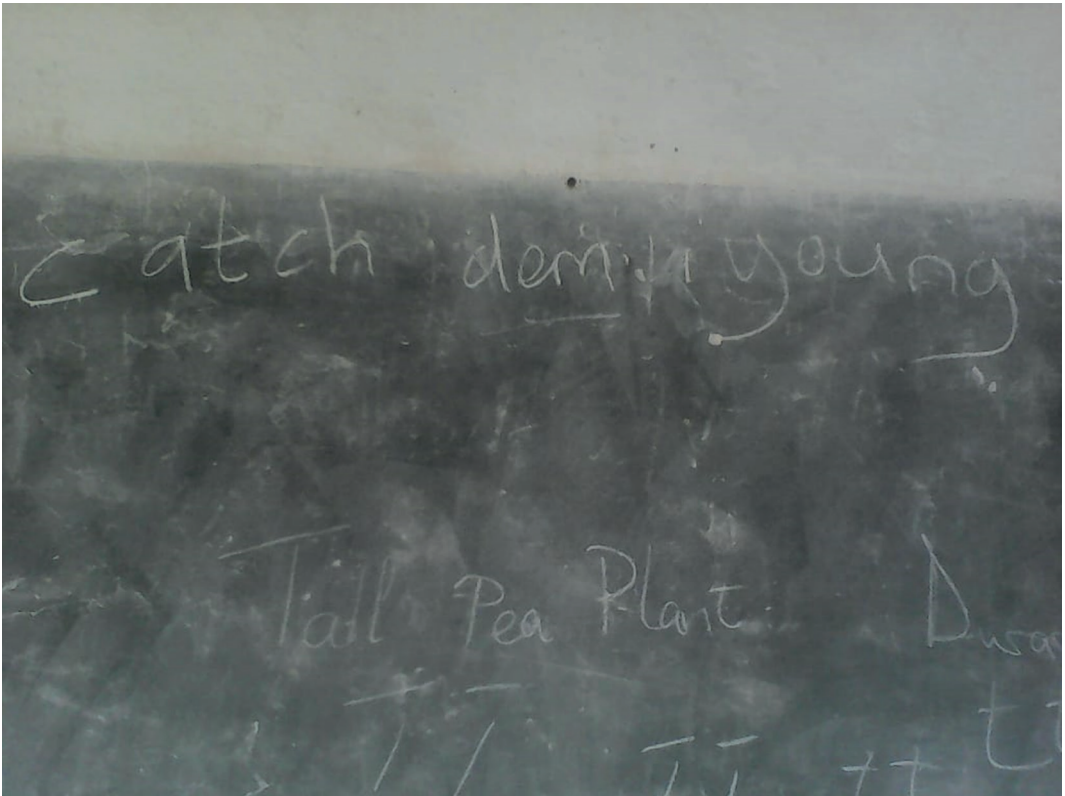 Catch dem young
Tall Pea Plant
TT TT tt tt